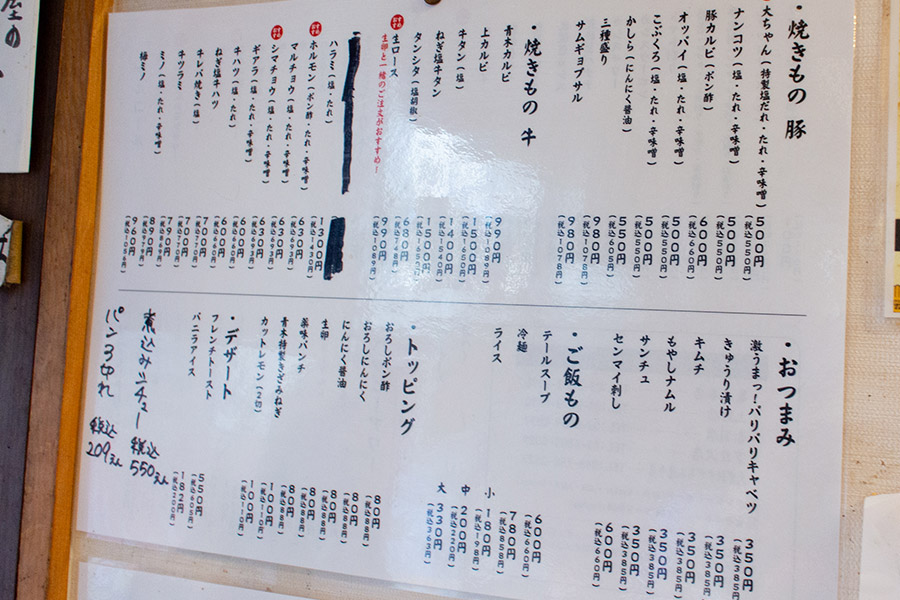 屋の
・焼きもの 豚
大ちゃん(特製塩だれ・たれ・辛味噌) 500円(税込550円)
ナンコツ(塩・たれ・辛味噌) 500円(税込550円)
豚カルビ(ポン酢) 600円(税込660円)
オッパイ(塩・たれ・辛味噌) 500円(税込550円)
こぶくろ(塩・たれ・辛味噌) 500円(税込550円)
かしら(にんにく醤油) 550円(税込605円)
三種盛り 980円(税込1078円)
サムギョプサル 980円(税込1078円)
・焼きもの 牛
青木カルビ 990円(税込1089円)
上カルビ 1500円(税込1650円)
牛タン(塩) 1400円(税込1540円)
ねぎ塩牛タン 1500円(税込1650円)
タンシタ(塩胡椒) 680円(税込748円)
おすすめ 生ロース 990円(税込1089円)
生卵と一緒のご注文がおすすめ!
ハラミ(塩・たれ) 1300円(税込1430円)
おすすめ ホルモン(ポン酢・たれ・辛味噌) 630円(税込693円)
マルチョウ(塩・たれ・辛味噌) 630円(税込693円)
おすすめ シマチョウ(塩・たれ・辛味噌) 630円(税込693円)
ギアラ(塩・たれ・辛味噌) 600円(税込660円)
牛ハツ(塩・たれ) 600円(税込660円)
ねぎ塩牛ハツ 700円(税込770円)
牛レバ焼き(塩) 700円(税込770円)
牛ツラミ 790円(税込869円)
ミノ(塩・たれ・辛味噌) 890円(税込979円)
梅ミノ 960円(税込1056円)
・おつまみ
激うまっ!パリパリキャベツ 350円(税込385円)
きゅうり漬け 350円(税込385円)
キムチ 350円(税込385円)
もやしナムル 350円(税込385円)
サンチュ 350円(税込385円)
センマイ刺し 600円(税込660円)
・ご飯もの
テールスープ 600円(税込660円)
冷麺 780円(税込858円)
ライス 小 180円(税込198円)
中 200円(税込220円)
大 330円(税込363円)
・トッピング
おろしポン酢 80円(税込88円)
おろしにんにく 80円(税込88円)
にんにく醤油 80円(税込88円)
生卵 80円(税込88円)
薬味パンチ 80円(税込88円)
青木特製きざみねぎ 100円(税込110円)
カットレモン(2切) 100円(税込110円)
・デザート
フレンチトースト 550円(税込605円)
バニラアイス 182円(税込200円)
煮込みシチュー 税込550えん
パン3切れ 税込209えん